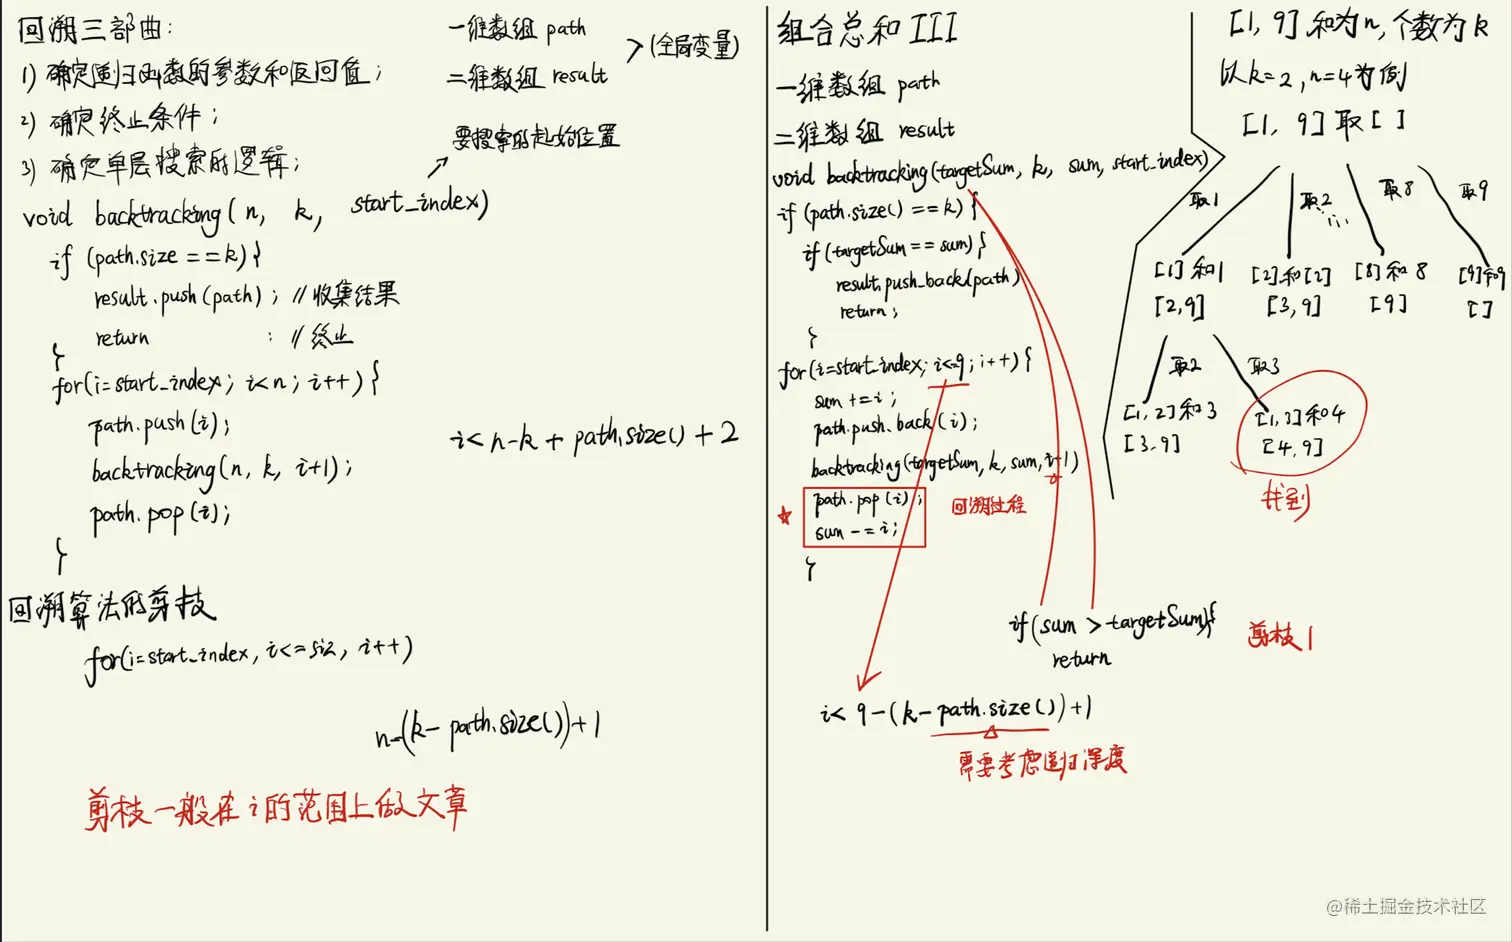 回溯三部曲:
1) 确定递归函数的参数和返回值;
2) 确定终止条件;
3) 确定单层搜索的逻辑;
一维数组 path
二维数组 result
> (全局变量)
要搜索的起始位置
void backtracking(n, k, start_index)
if (path.size ==k){
result.push(path); //收集结果
return ; //终止
}
for(i=start_index; i<n; i++){
path.push(i);
backtracking(n, k, i+1);
path.pop(i);
}
i< n-k + path.size() + 2
回溯算法的剪枝
for(i=start_index, i<=siz, i++)
n-(k- path.size())+1
剪枝一般在 i 的范围上做文章
组合总和 III
一维数组 path
二维数组 result
void backtracking(targetSum, k, sum, start_index)
if (path.size() ==k){
if(targetSum == sum){
result.push_back(path)
return;
}
for(i=start_index; i<=9; i++){
sum +=i;
path.push_back(i);
backtracking(targetSum, k, sum, i+1)
path.pop(i);
sum -=i;
回溯过程
}
if(sum > targetSum){
return
剪枝1
i< 9-(k-path.size())+1
需要考虑递归深度
[1, 9],和为n,个数为k
以k=2, n=4为例
[1, 9]取[ ]
取1
取2
...
取8
取9
[1]和1
[2,9]
[2]和[2]
[3,9]
[8]和8
[9]
[9]和9
[ ]
取2
取3
[1,2]和3
[3,9]
[1,3]和4
[4,9]
找到
@稀土掘金技术社区